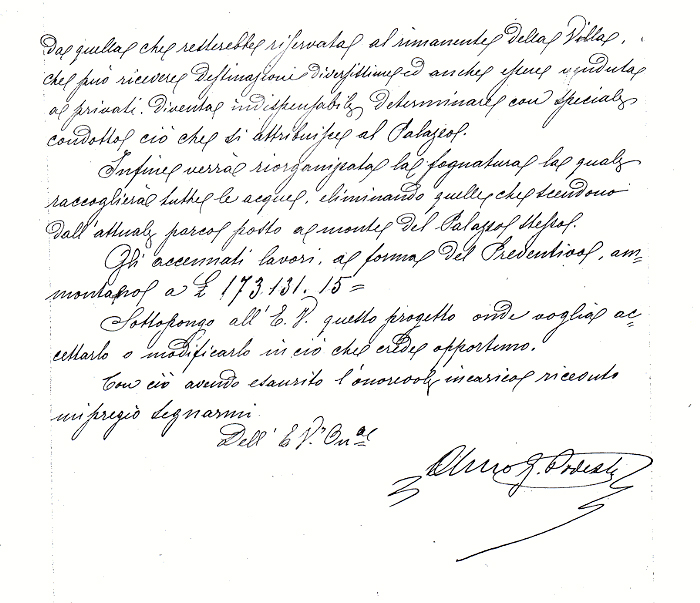 da quella che resterebbe riservata al rimanente della Villa,
che può ricevere destinazioni diversissime ed anche essere venduta
a privati. diventa indispensabile determinare con speciale
condotta ciò che si attribuisce al Palazzo.
Infine verrà riorganizzata la fognatura la quale
raccoglierà tutte le acque, eliminando quelle che scendono
dall'attuale parco posto a monte del Palazzo stesso.
Gli accennati lavori, a forma del Preventivo, am=
montano a £ 173.131.15=
Sottopongo all'E. V. questo progetto onde voglia ac=
cettarlo o modificarlo in ciò che crede opportuno.
Con ciò avendo esaurito l'onorevole incarico ricevuto
mi pregio segnarmi
Dell' E. V.
Podesti